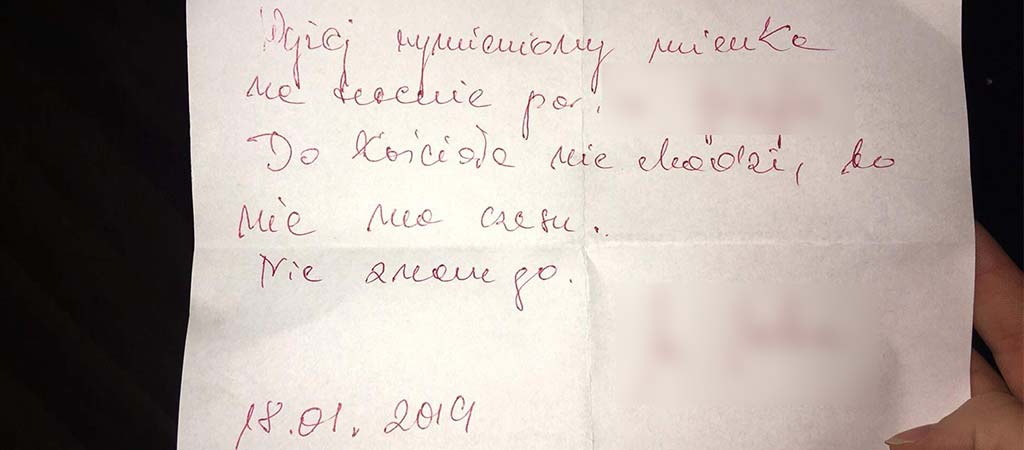 Wyżej wymieniony mieszka
na terenie par.
Do Kościoła nie chodzi, bo
nie ma czasu..
Nie znam go.
18.01.2019